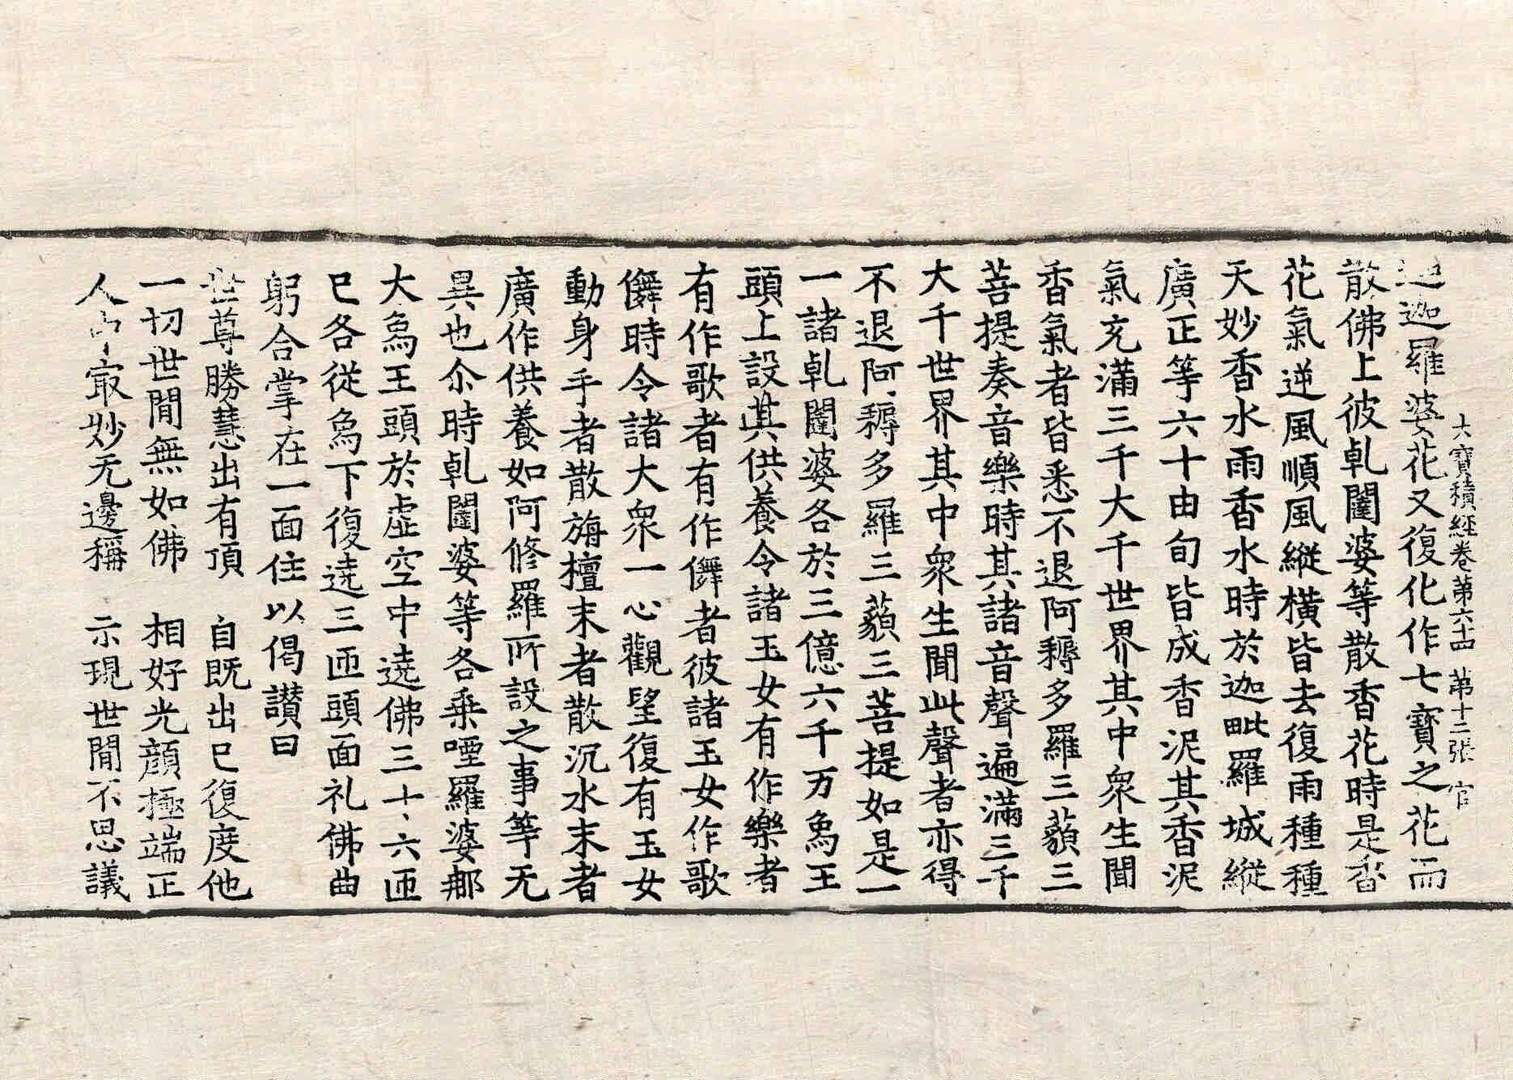 大寶積經卷第六十四 第十二張 官
迦羅婆花又復化作七寶之花而
散佛上彼乹闥婆等散香花時是香
花氣逆風順風縱橫皆去復雨種種
天妙香水雨香水時於迦毗羅城縱
廣正等六十由旬皆成香泥其香泥
氣充滿三千大千世界其中衆生聞
香氣者皆悉不退阿耨多羅三藐三
菩提奏音樂時其諸音聲遍滿三千
大千世界其中衆生聞此聲者亦得
不退阿耨多羅三藐三菩提如是一
一諸乹闥婆各於三億六千万鳥王
頭上設其供養令諸玉女有作樂者
有作歌者有作儛者彼諸玉女作歌
儛時令諸大衆一心觀望復有玉女
動身手者散旃檀末者散沉水末者
廣作供養如阿修羅所設之事等无
異也尒時乹闥婆等各乘堙羅婆那
大鳥王頭於虛空中遶佛三十六匝
已各從鳥下復遶三匝頭面礼佛曲
躬合掌在一面住以偈讃曰
世尊勝慧出有頂 自既出已復度他
一切世閒無如佛 相好光顏極端正
人中㝡妙无邊稱 示現世閒不思議